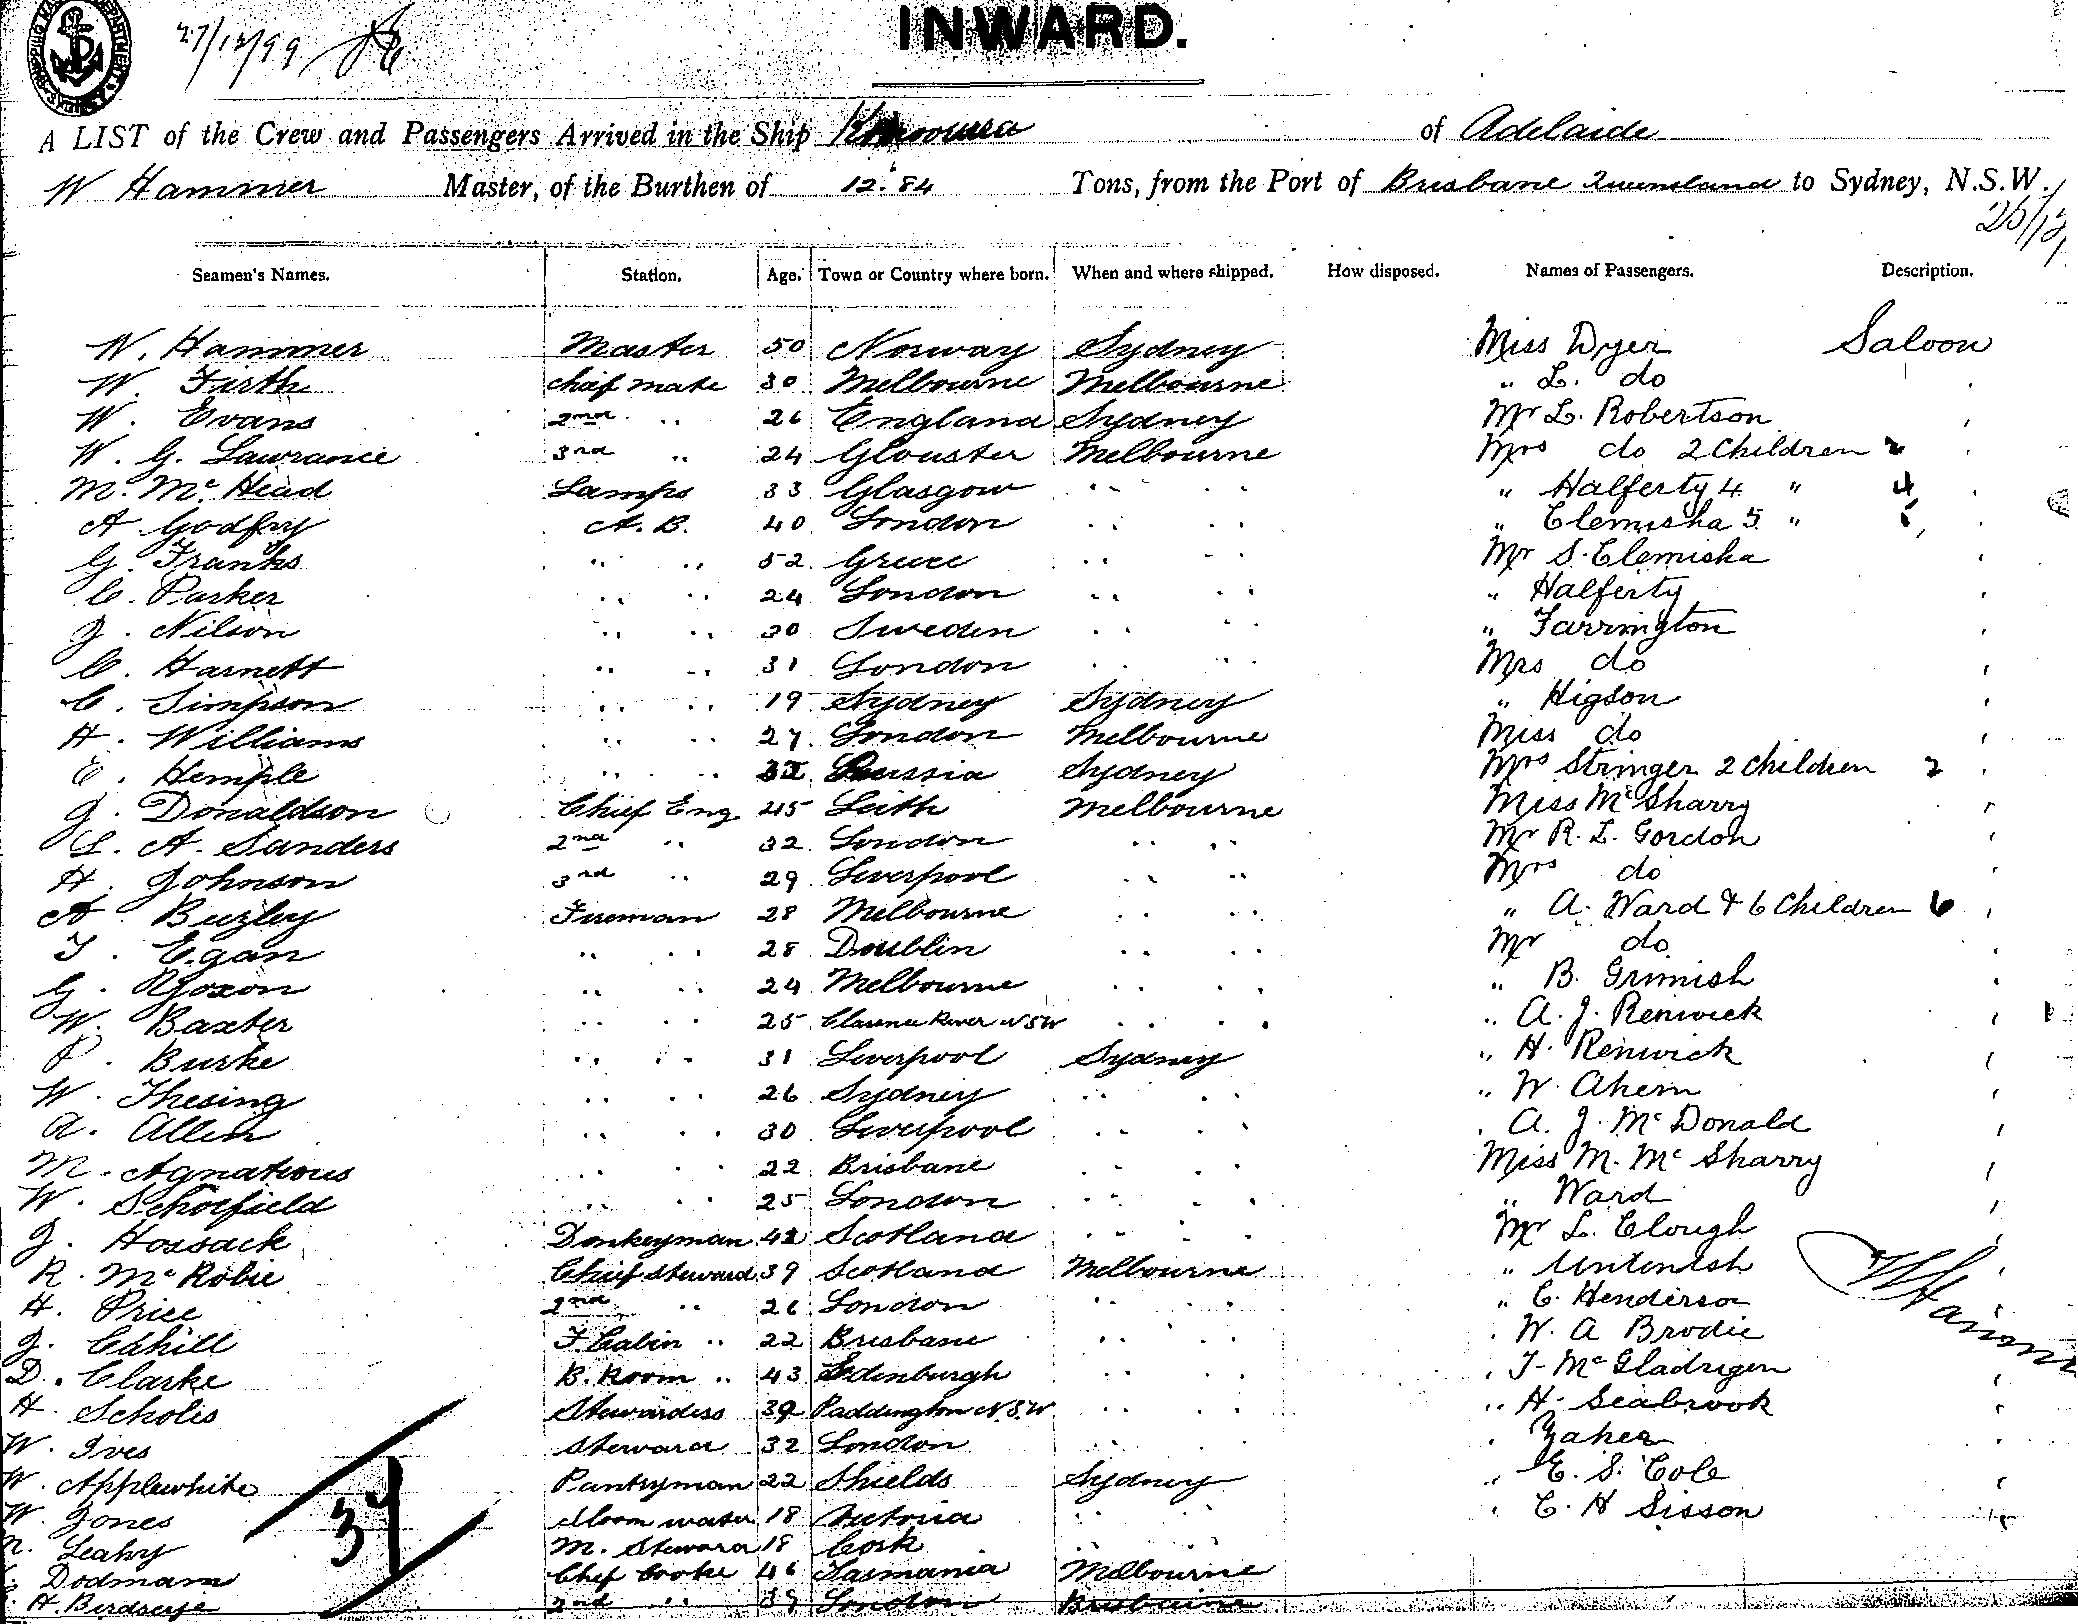 27/12/99
INWARD.
A LIST of the Crew and Passengers Arrived in the Ship of Adelaide
W Hammer Master, of the Burthen of 1284 Tons, from the Port of Brisbane Queensland to Sydney, N.S.W.
Seamen's Names. Station. Age. Town or Country where born. When and where shipped. How disposed. Names of Passengers. Description.
W. Hammer Master 50 Norway Sydney Miss Dyer Saloon
W. Firth Chief mate 30 Melbourne Melbourne " L. do
W. Evans 2nd " 26 England Sydney Mr L. Robertson
W. G. Lawrance 3rd " 24 Glouster Melbourne Mrs do 2 Children 2
M. Mc Head Lamps 33 Glasgow " " " Halferty 4 " 4
A Godfry A. B. 40 London " " " Clemisha 5 "
G. Franks " " 52 Greece " " Mr S. Clemisha
C. Parker " " 24 London " " " Halferty
J. Nilson " " 30 Sweden " " " Farrington
C. Harnett " " 31 London " " Mrs do
C. Simpson " " 19 Sydney Sydney " Higson
H. Williams " " 27 London Melbourne Miss do
E. Hemple " " Sydney Mrs Stringer 2 Children 2
J. Donaldson Chief Eng 45 Leith Melbourne Miss Mc Sharry
L. A. Sanders 2nd " 32 London " " Mr R. L. Gordon
H. Johnson 3rd " 29 Liverpool " " Mrs do
A Buzley Fireman 28 Melbourne " " " A. Ward & 6 Children 6
T. Egan " " 28 Doublin " " Mr do
G. Yoxon " " 24 Melbourne " " " B. Grimish
W. Baxter " " 25 Clarence River NSW " " " A. J. Renwick
P. Burke " " 31 Liverpool Sydney " H. Renwick
W. Thesing " " 26 Sydney " " " W. Ahern
A. Allen " " 30 Liverpool " " " A. J. Mc Donald
M. Agnatious " " 22 Brisbane " " Miss M. Mc Sharry
W. Schofield " " 25 London " " " Ward
J. Hossack Donkeyman 42 Scotland " " Mr L. Clough
R. Mc Robie Chief Steward 39 Scotland Melbourne "
H. Price 2nd " 26 London " " " C. Henderson
J. Cahill F. Cabin " 22 Brisbane " " " W. A Brodie
D. Clarke B. Room " 43 Edenburgh " " " T. Mc Gladrigen
H. Scholes Stewardess 39 Paddington N.S.W " " " H. Seabrook
W. Ives Steward 32 London " " "
W. Applewhite Pantryman 22 Shields Sydney " E. S. Cole
W. Jones 18 Victoria " " " C. H Sisson
Leahy M. Steward 18 Cork " "
Dodmann Chef Cooke 46 Tasmania Melbourne
H. Birdseye 2nd " 39 London Brisbane